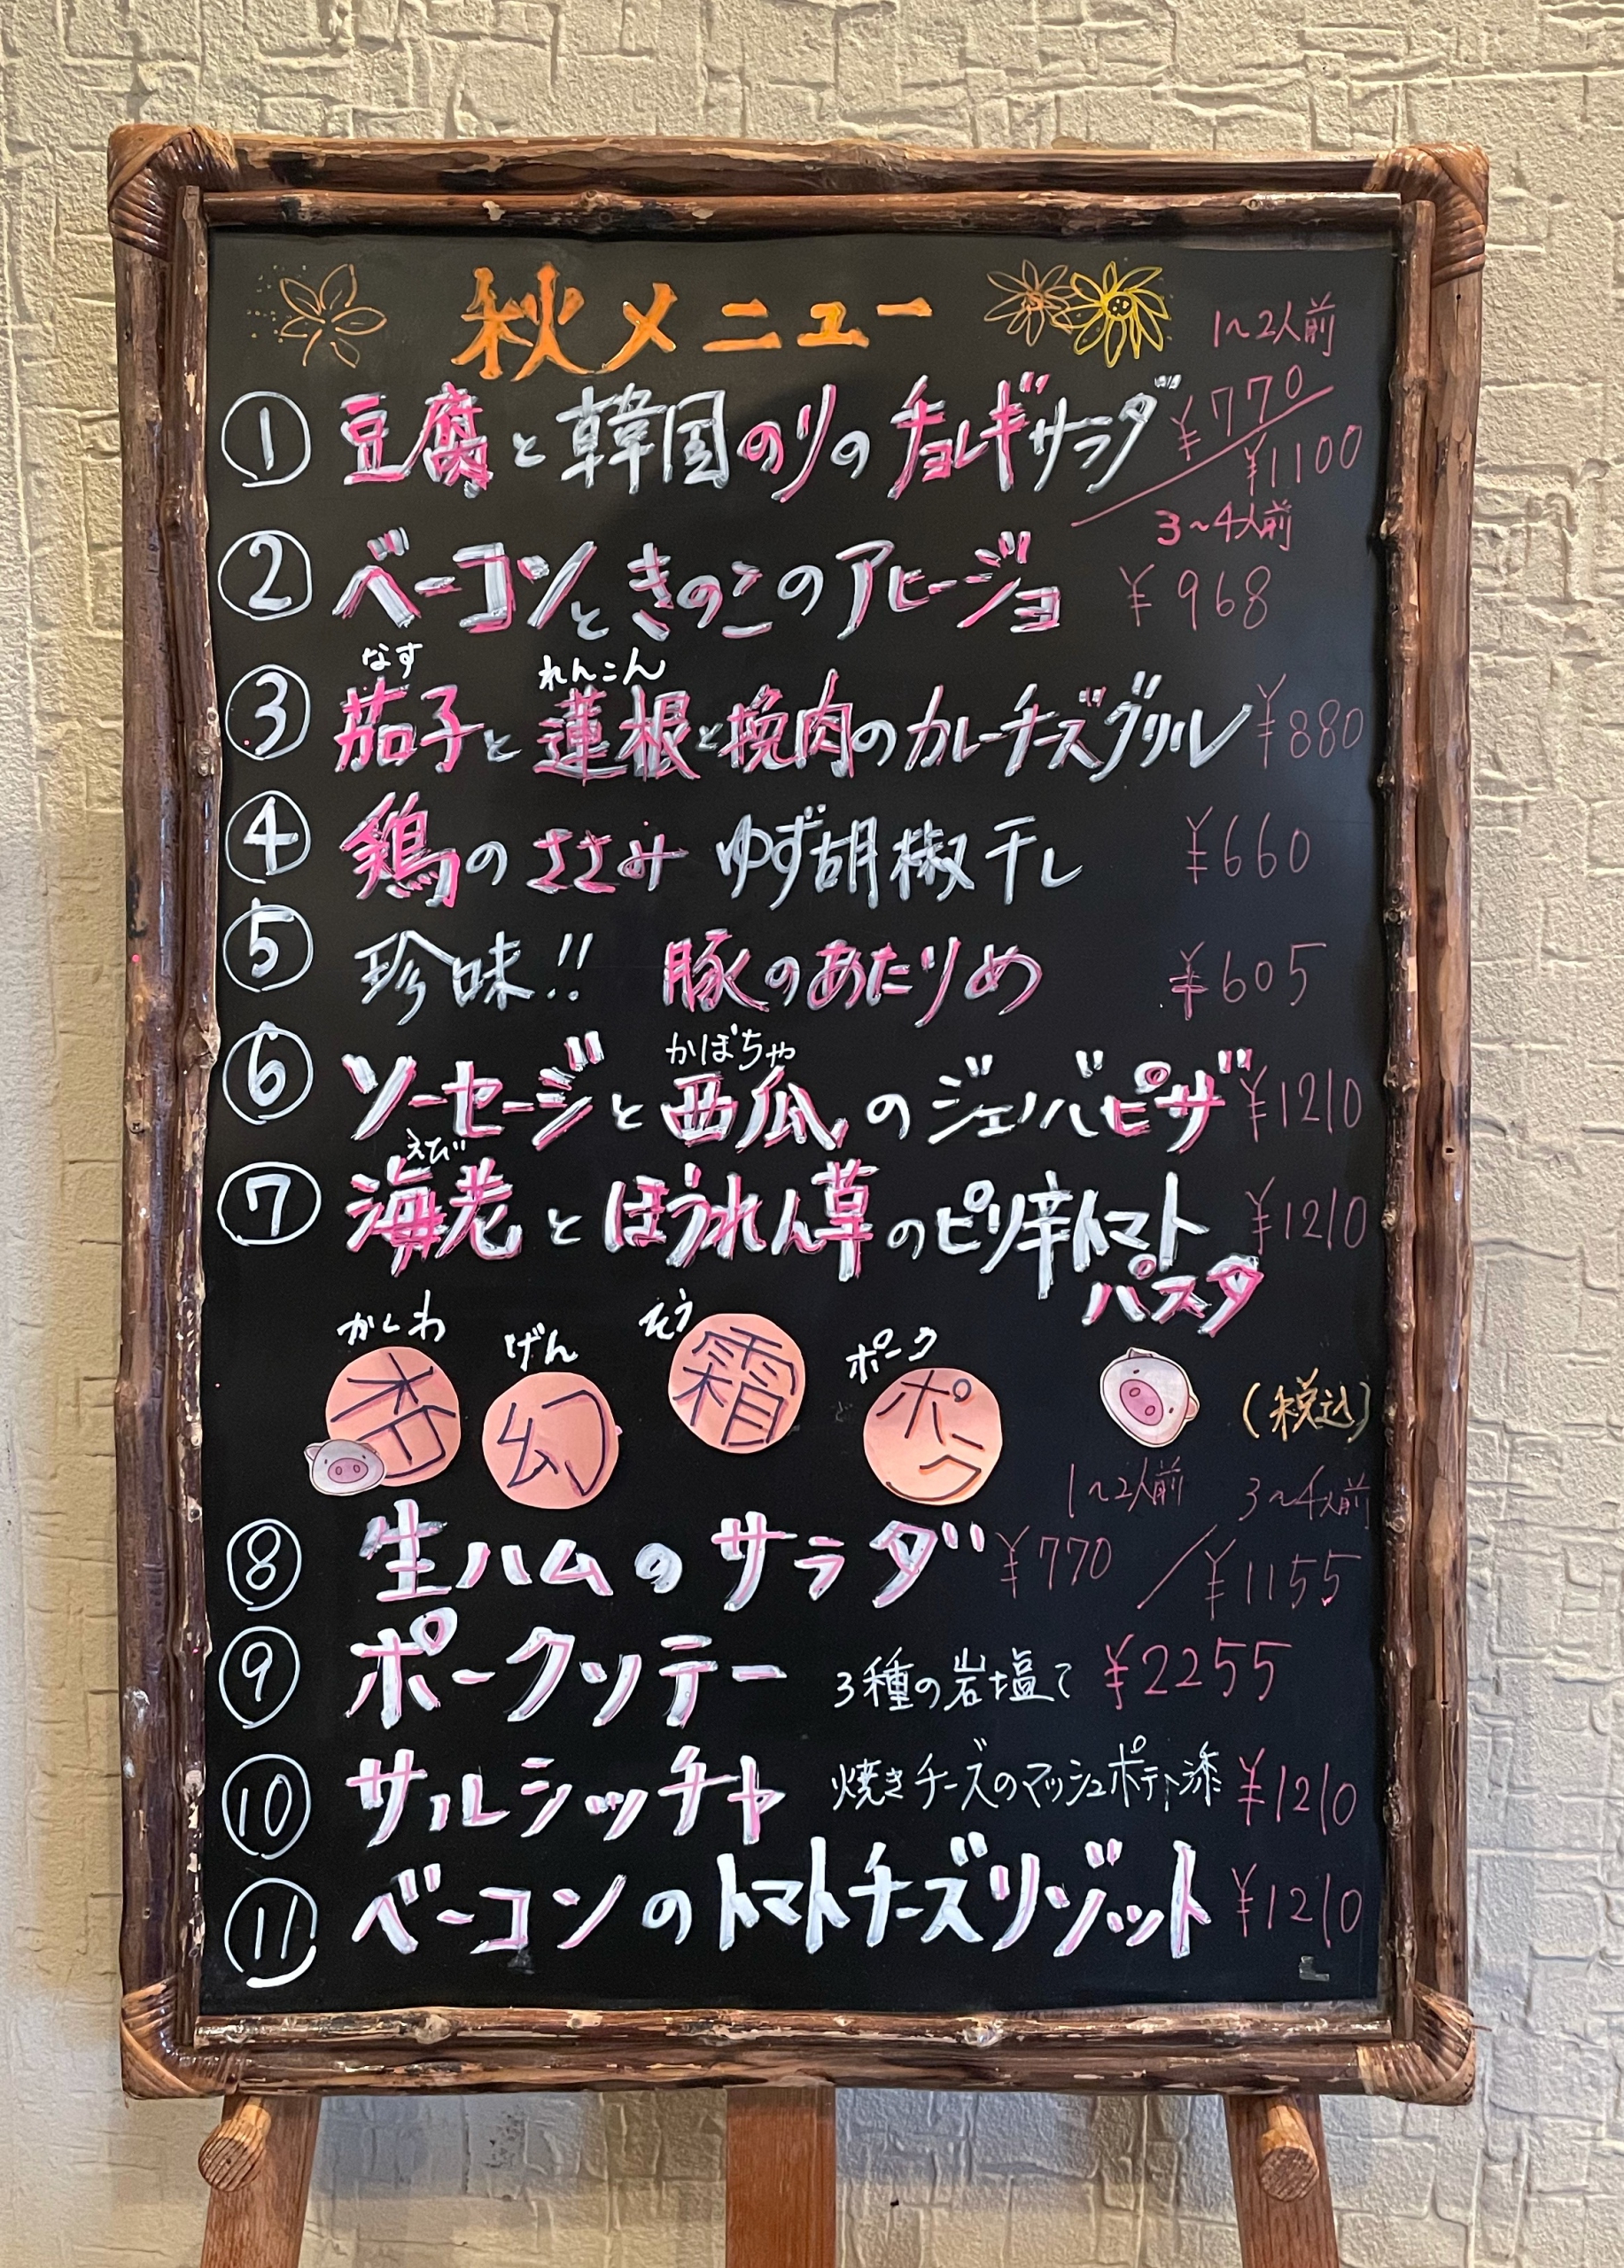 秋メニュー
1~2人前
① 豆腐と韓国のりのチョレギサラダ ¥770/¥1100
3~4人前
② ベーコンときのこのアヒージョ ¥968
なす れんこん
③ 茄子と蓮根と挽肉のカレーチーズグリル ¥880
④ 鶏のささみ ゆず胡椒干し ¥660
⑤ 珍味!! 豚のあたりめ ¥605
かぼちゃ
⑥ ソーセージと西瓜のジェノバピザ ¥1210
えび
⑦ 海老とほうれん草のピリ辛トマト ¥1210
パスタ
かしわ げん そう ポーク
杏 幻 霜 ポーク (税込)
1~2人前 3~4人前
⑧ 生ハムのサラダ ¥770/¥1155
⑨ ポークソテー 3種の岩塩で ¥2255
⑩ サルシッチャ 焼きチーズのマッシュポテト添 ¥1210
⑪ ベーコンのトマトチーズリゾット ¥1210